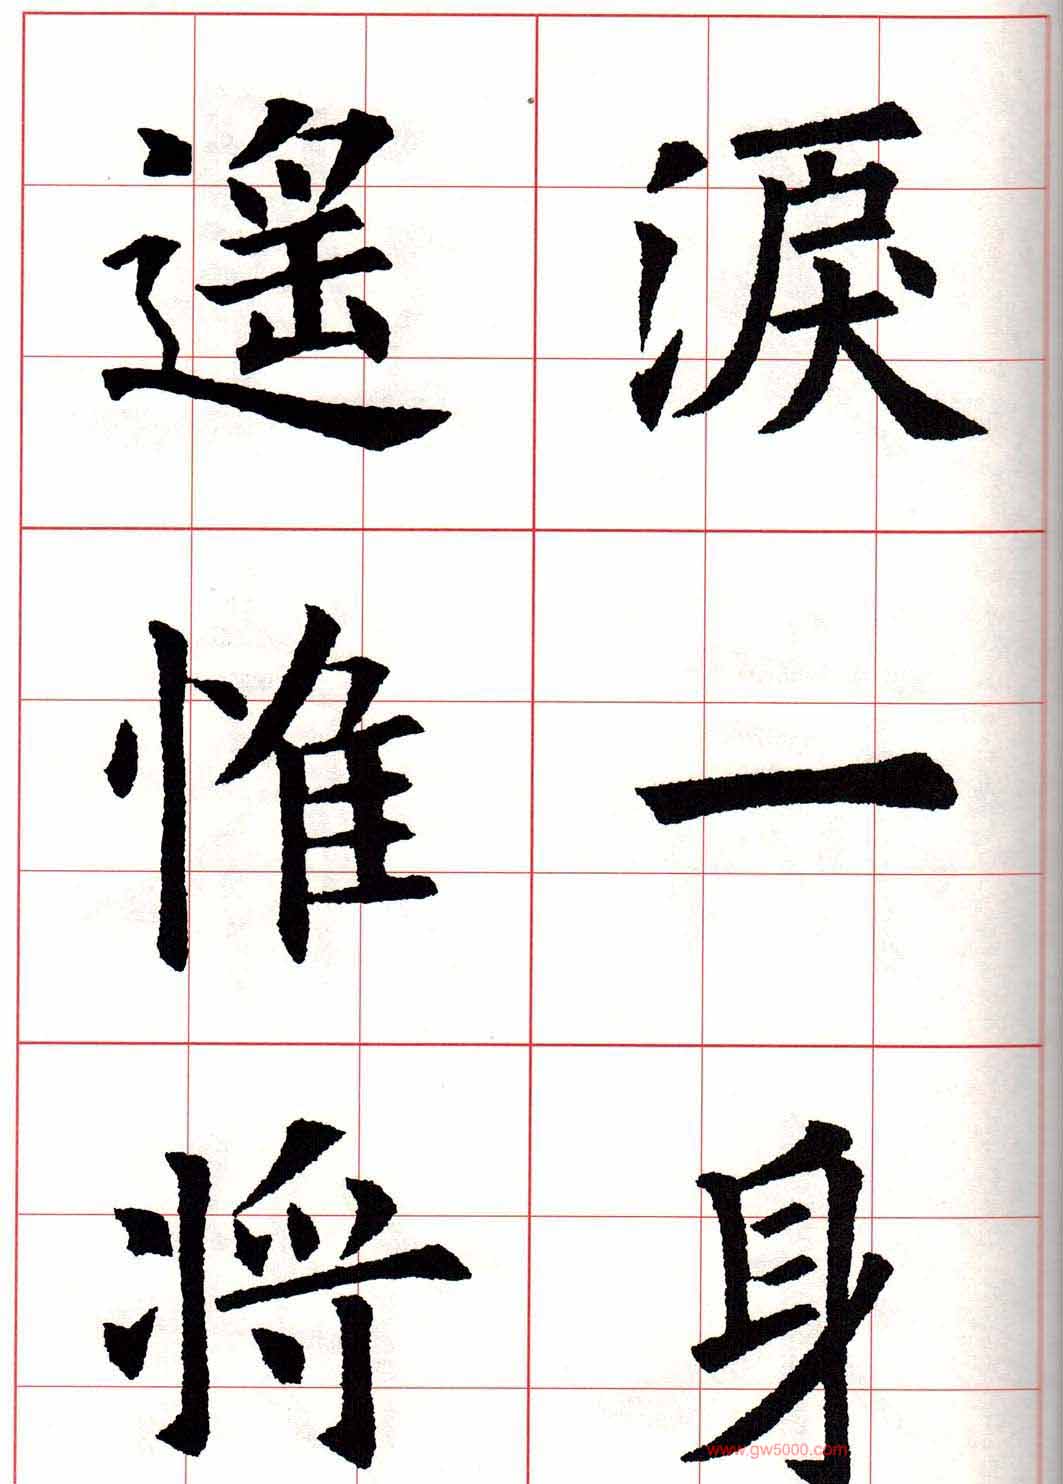 淚一身
遥惟将
www.gw5000.com